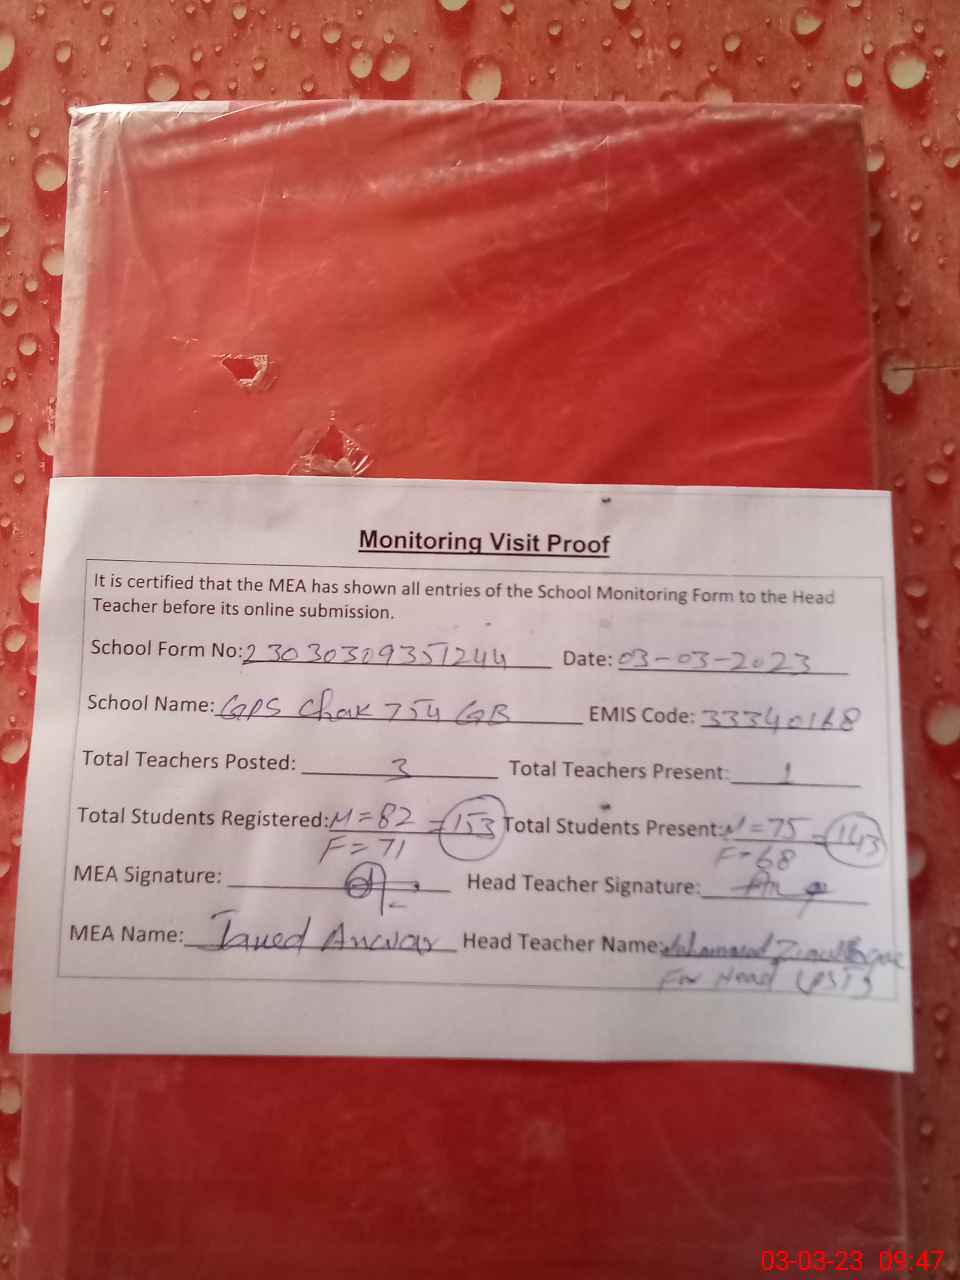 Monitoring Visit Proof
It is certified that the MEA has shown all entries of the School Monitoring Form to the Head
Teacher before its online submission.
School Form No: 23030309351244 Date: 03-03-2023
School Name: GPS Chak 754 GB EMIS Code: 33340168
Total Teachers Posted: 3 Total Teachers Present: 1
Total Students Registered: M=82 =153 Total Students Present: M=75 =143
F=71 F=68
MEA Signature: Head Teacher Signature:
MEA Name: Javed Anwar Head Teacher Name: Muhammad
For Head (PST)
03-03-23 09:47